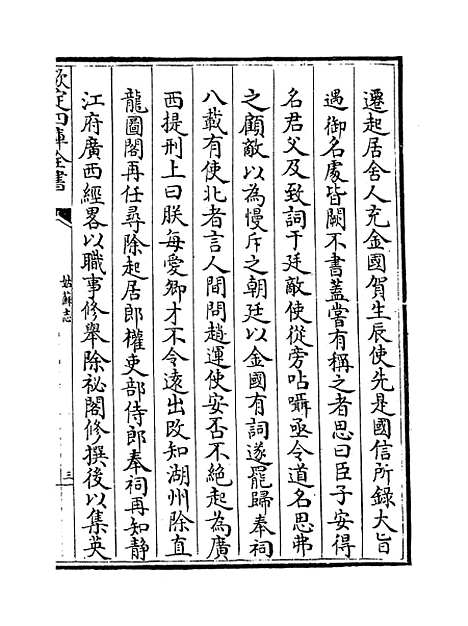 遷起居舍人充金國賀生辰使先是國信所錄大旨
遇御名處皆闕不書蓋嘗有稱之者思曰臣子安得
名君父及致詞于廷敵使從旁呫囁亟令道名思弗
之顧敵以為慢斥之朝廷以金國有詞遂罷歸奉祠
八載有使北者言人間問趙運使安否不絕起為廣
西提刑上曰朕每愛卿才不令遠出改知湖州除直
龍圖閣再任尋除起居郎權吏部侍郎奉祠再知靜
江府廣西經畧以職事修舉除祕閣修撰後以集英
欽定四庫全書
姑蘇志
三